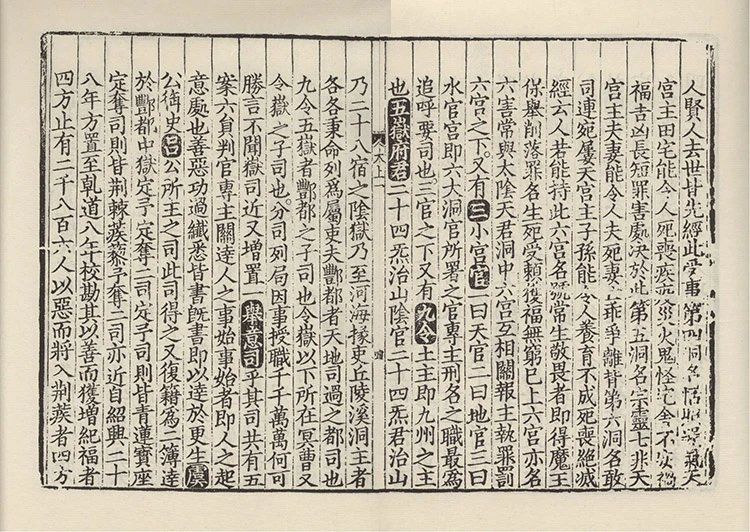 人賢人去世皆先經此受事第四洞名恬昭罪氣天
宮主田宅能令人死喪疾疫災火鬼怪宅舍不安
福吉凶長短罪害處決於此第五洞名宗靈七非天
宮主夫妻能令人夫死妻亡乖爭離背第六洞名敢
司連宛屢天宮主子孫能令人養育不成死喪絶滅
經云人若能持此六宮名號常生敬畏者即得魔王
保舉削落罪名生死受賴獲福無窮已上六宮亦名
六害常與太陰天君洞中六宮互相關報主執罪罰
六宮之下又有三小宮官一曰天官二曰地官三曰
水官官即六大洞官所署之官專主刑名之職最爲
追呼要司也三官之下又有九令土主即九州之主
也五嶽府君二十四炁治山陰官二十四炁君治山
乃二十八宿之陰獄乃至河海掾吏丘陵溪洞主者
各各秉命列爲屬吏夫酆都者天地司過之都司也
九令五嶽者酆都之子司也令嶽以下所在冥曹又
令嶽之子司也分司列局因事授職千千萬萬何可
勝言不聞嶽司近又增置舉意司乎其司共有五
案六員判官專主關達人之事始事始者即人之起
意處也善惡功過纖悉皆書旣書即以達於更生虞
公御史呂公所主之司此司得之又復籍爲一簿達
於酆都中嶽定予定奪二司定予司則皆青蓮寶座
定奪司則皆荆棘蒺藜予奪二司亦近自紹興二十
八年方置至乾道八年校勘其以善而獲增紀福者
四方止有二千八百六人以惡而將入荆蒺者四方